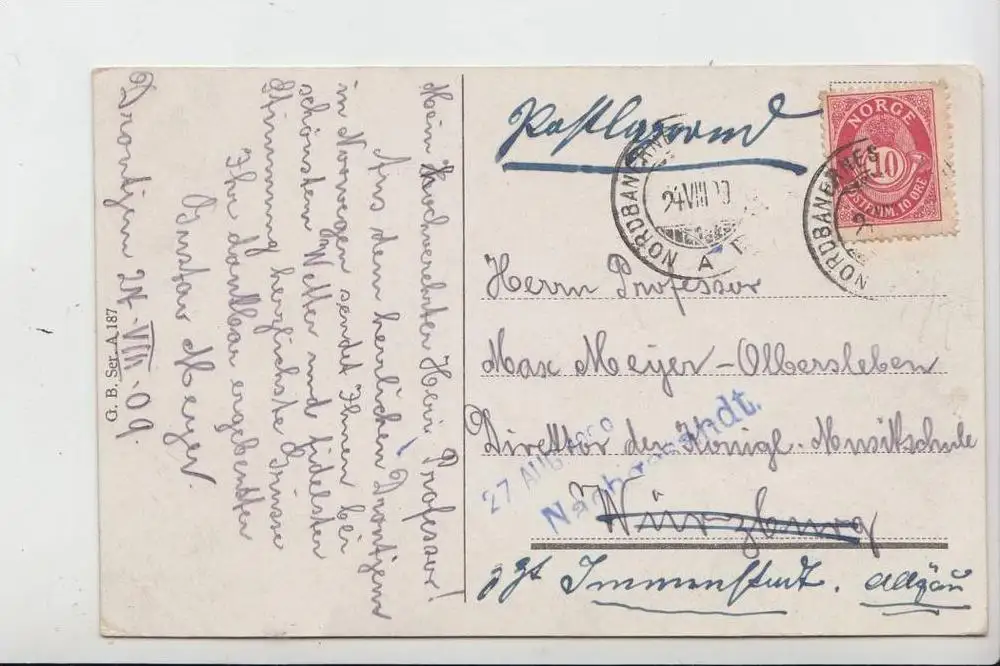 Mein hochverehrter Herr Professor!
Aus dem herrlichen Drontjem
in Norwegen sendet Ihnen bei
schönsten Wetter und fidelster
Stimmung herzlichste Grüsse
Ihr dankbar ergebenster
Gustav Meyer.
Drontjem 24-VIII-09.
G. B. Ser. A 187
Postlagernd
NORGE
10
POSTFRIM. 10 ØRE
NORDBANERNES
24 VIII 09
A
NORDBANERNES
Herrn Professor
Max Meyer-Olbersleben
Direktor der Königl. Musikschule
27 AUG 1909
Nachgesandt.
Würzburg
zzt Immenstadt. Allgäu